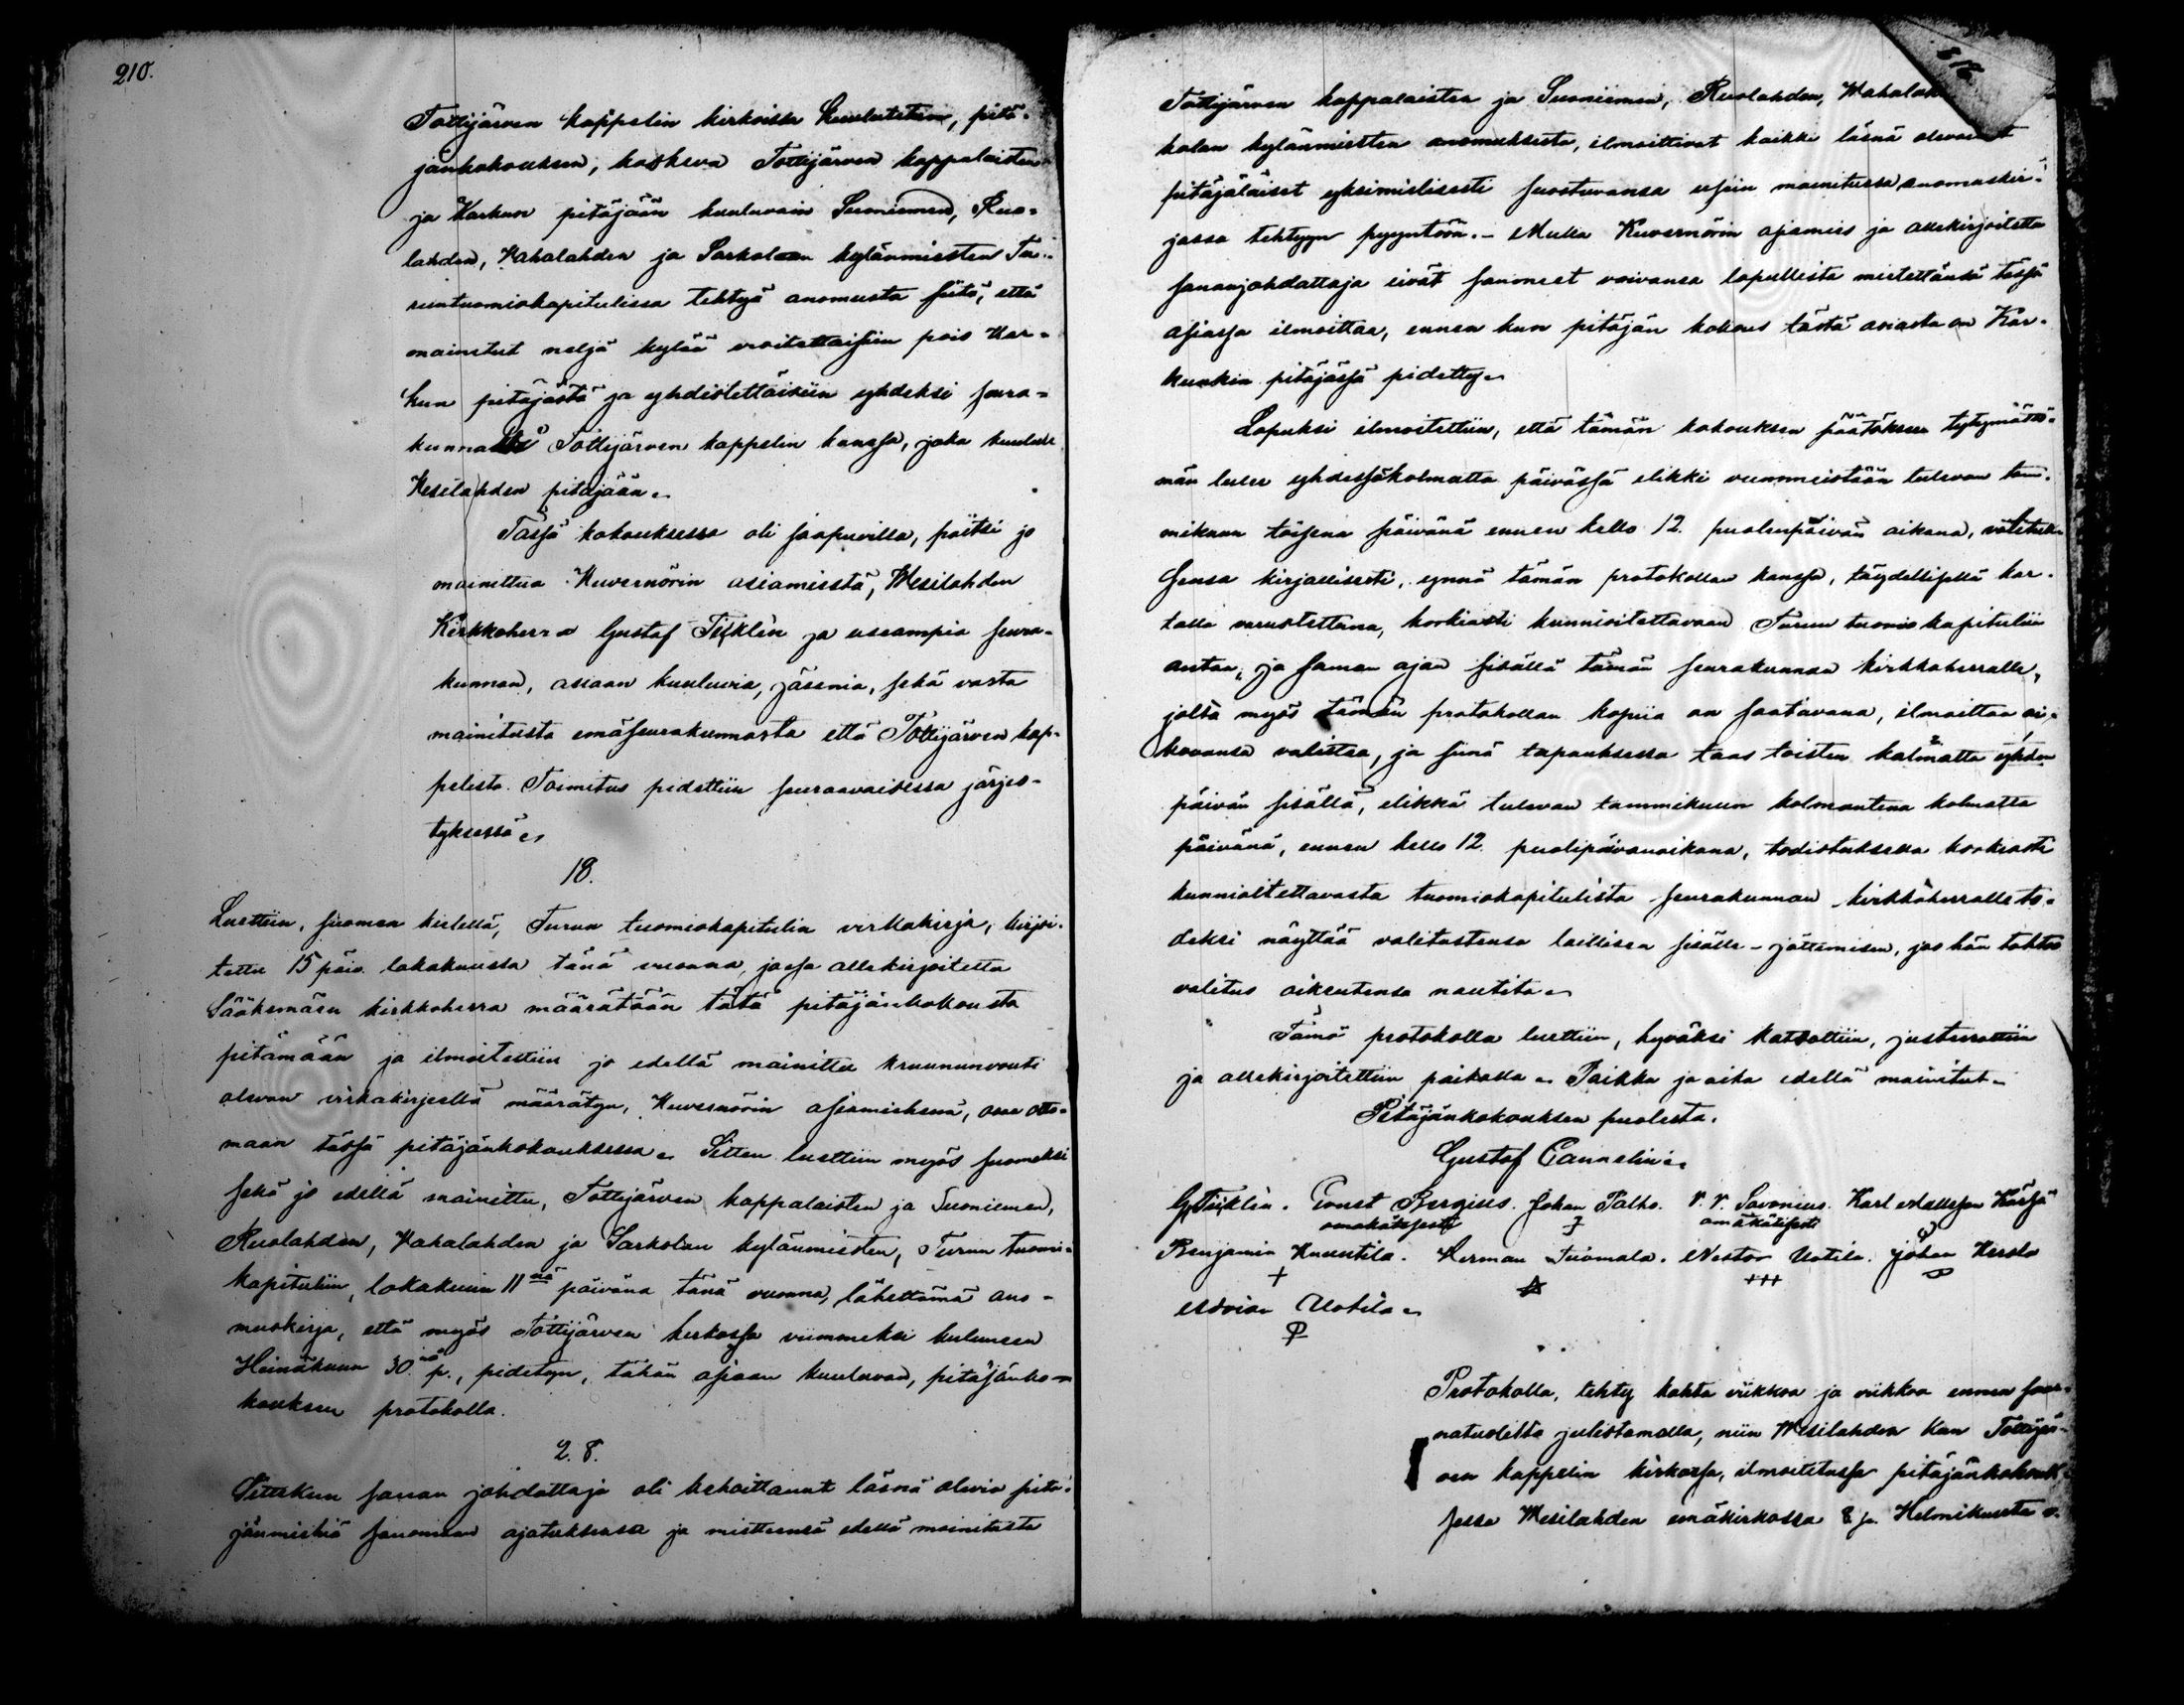 210.
Tottijärven kappelin kirkoissa kuulutetun, pitä-
jänkokouksen, koskeva Tottijärven kappalaisten
ja Karkun pitäjään kuuluvain Suoniemen, Kuo-
lahden, Vahalahden ja Sarkolan kylänmiesten Tu-
runtuomiokapitulissa tehtyä anomusta siitä, että
mainitut neljä kylää eroitettaisiin pois Kar-
kun pitäjästä ja yhdistettäisiin yhdeksi seura-
kunnaksi Tottijärven kappelin kanssa, joka kuuluu
Vesilahden pitäjään.
Tässä kokouksessa oli saapuvilla, paitsi jo
mainittua Kuvernörin asiamiestä, Wesilahden
Kirkkoherra Gustaf Ticklén ja useampia seura-
kunnan, asiaan kuuluvia, jäseniä, sekä vasta
mainitusta emäseurakunnasta että Tottijärven kap-
pelista. Toimitus pidettiin seuraavaisessa järjes-
tyksessä.
1§.
Luettiin, suomen kielellä, Turun tuomiokapitulin virkakirja, kirjoi-
tettu 15 päiv. lokakuussa tänä vuonna, jossa allekirjoitettu
Sääksmäen kirkkoherra määrätään tätä pitäjänkokousta
pitämään ja ilmoitettiin jo edellä mainittu kruununvouti
olevan virkakirjeellä määrätyn, Kuvernörin asiamiehenä, osaa otta-
maan tässä pitäjänkokouksessa. Sitten luettiin myös suomeksi
sekä jo edellä mainittu, Tottijärven kappalaisten ja Suoniemen,
Kuolahden, Vahalahden ja Sarkolan kylänmiesten, Turun tuomi-
kapituliin, lokakuun 11nä päivänä tänä vuonna, lähettämä ano-
muskirja, että myös Tottijärven kirkossa viimmeksi kuluneen
Heinäkuun 30.nä p., pidetyn, tähän asiaan kuuluvan, pitäjänko-
kouksen protokolla.
2.§.
Sittekun sanan johdattaja oli kehoittanut läsnä olevia pitä-
jänmiehiä sanomaan ajatuksensa ja mietteensä edellä mainitusta
Tottijärven kappalaisten ja Suoniemen, Kuolahden, Wahalah
kolan kylänmiesten anomuksesta, ilmoittivat kaikki läsnä olevat
pitäjäläiset yksimielisesti suostuvansa usein mainitussa anomuskir-
jassa tehtyyn pyyntöön. – Mutta Kuvernörin asiamies ja allekirjoitettu
sananjohdattaja eivät sanoneet voivansa lopullista mietettänsä tässä
asiassa ilmoittaa, ennen kun pitäjän kokous tästä asiasta on Kar-
kunkin pitäjässä pidetty.
Lopuksi ilmoitettiin, että tämän kokouksen päätökseen tytymättö-
män tulee yhdessäkolmatta päivässä elikki viimmeistään tulevan tam-
mikuun toisena päivänä ennen kello 12. puolenpäivän aikana, valituk-
sensa kirjallisesti, ynnä tämän protokollan kanssa, täydellisellä kar-
talla varustettuna, korkiasti kunnioitettavaan Turun tuomiokapituliin
antaa, ja saman ajan sisällä tämän seurakunnan kirkkoherralle,
jolta myös tämän protokollan kopiia on saatavana, ilmoittaa ai-
kovansa valittaa, ja siinä tapauksessa taas toisten kolmatta yhden
päivän sisällä, elikkä tulevan tammikuun kolmantena kolmatta
päivänä, ennen kello 12. puolipäivänaikana, todistuksella korkiasti
kunnioitettavasta tuomiokapitulista seurakunnan kirkkoherralle to-
deksi näyttää valitustensa laillisen sisälle-jättämisen, jos hän tahtoo
valitus oikeutensa nautita.
Tämä protokolla luettiin, hyväksi katsottiin, justeerattiin
ja allekirjoitettiin paikalla. Paikka ja aika edellä mainitut.
Pitäjänkokouksen puolesta.
Gustaf Cannelin.
G. Ticklén. Ernst Bergius. Johan Palho. V. V. Savonius. Karl
omakätisesti omakätisesti
Benjamin Knuutila. Herman Tuomala. Nestor Uotila. Johan
+ +++
Uotila.
Protokolla, tehty kahta viikkoa ja viikkoa ennen saar-
natuolilta julistamalla, niin Wesilahden kun Tottijär-
ven kappelin kirkossa, ilmoitetussa pitäjänkokouk-
sessa Wesilahden emäkirkossa 8 p. Helmikuuta v.